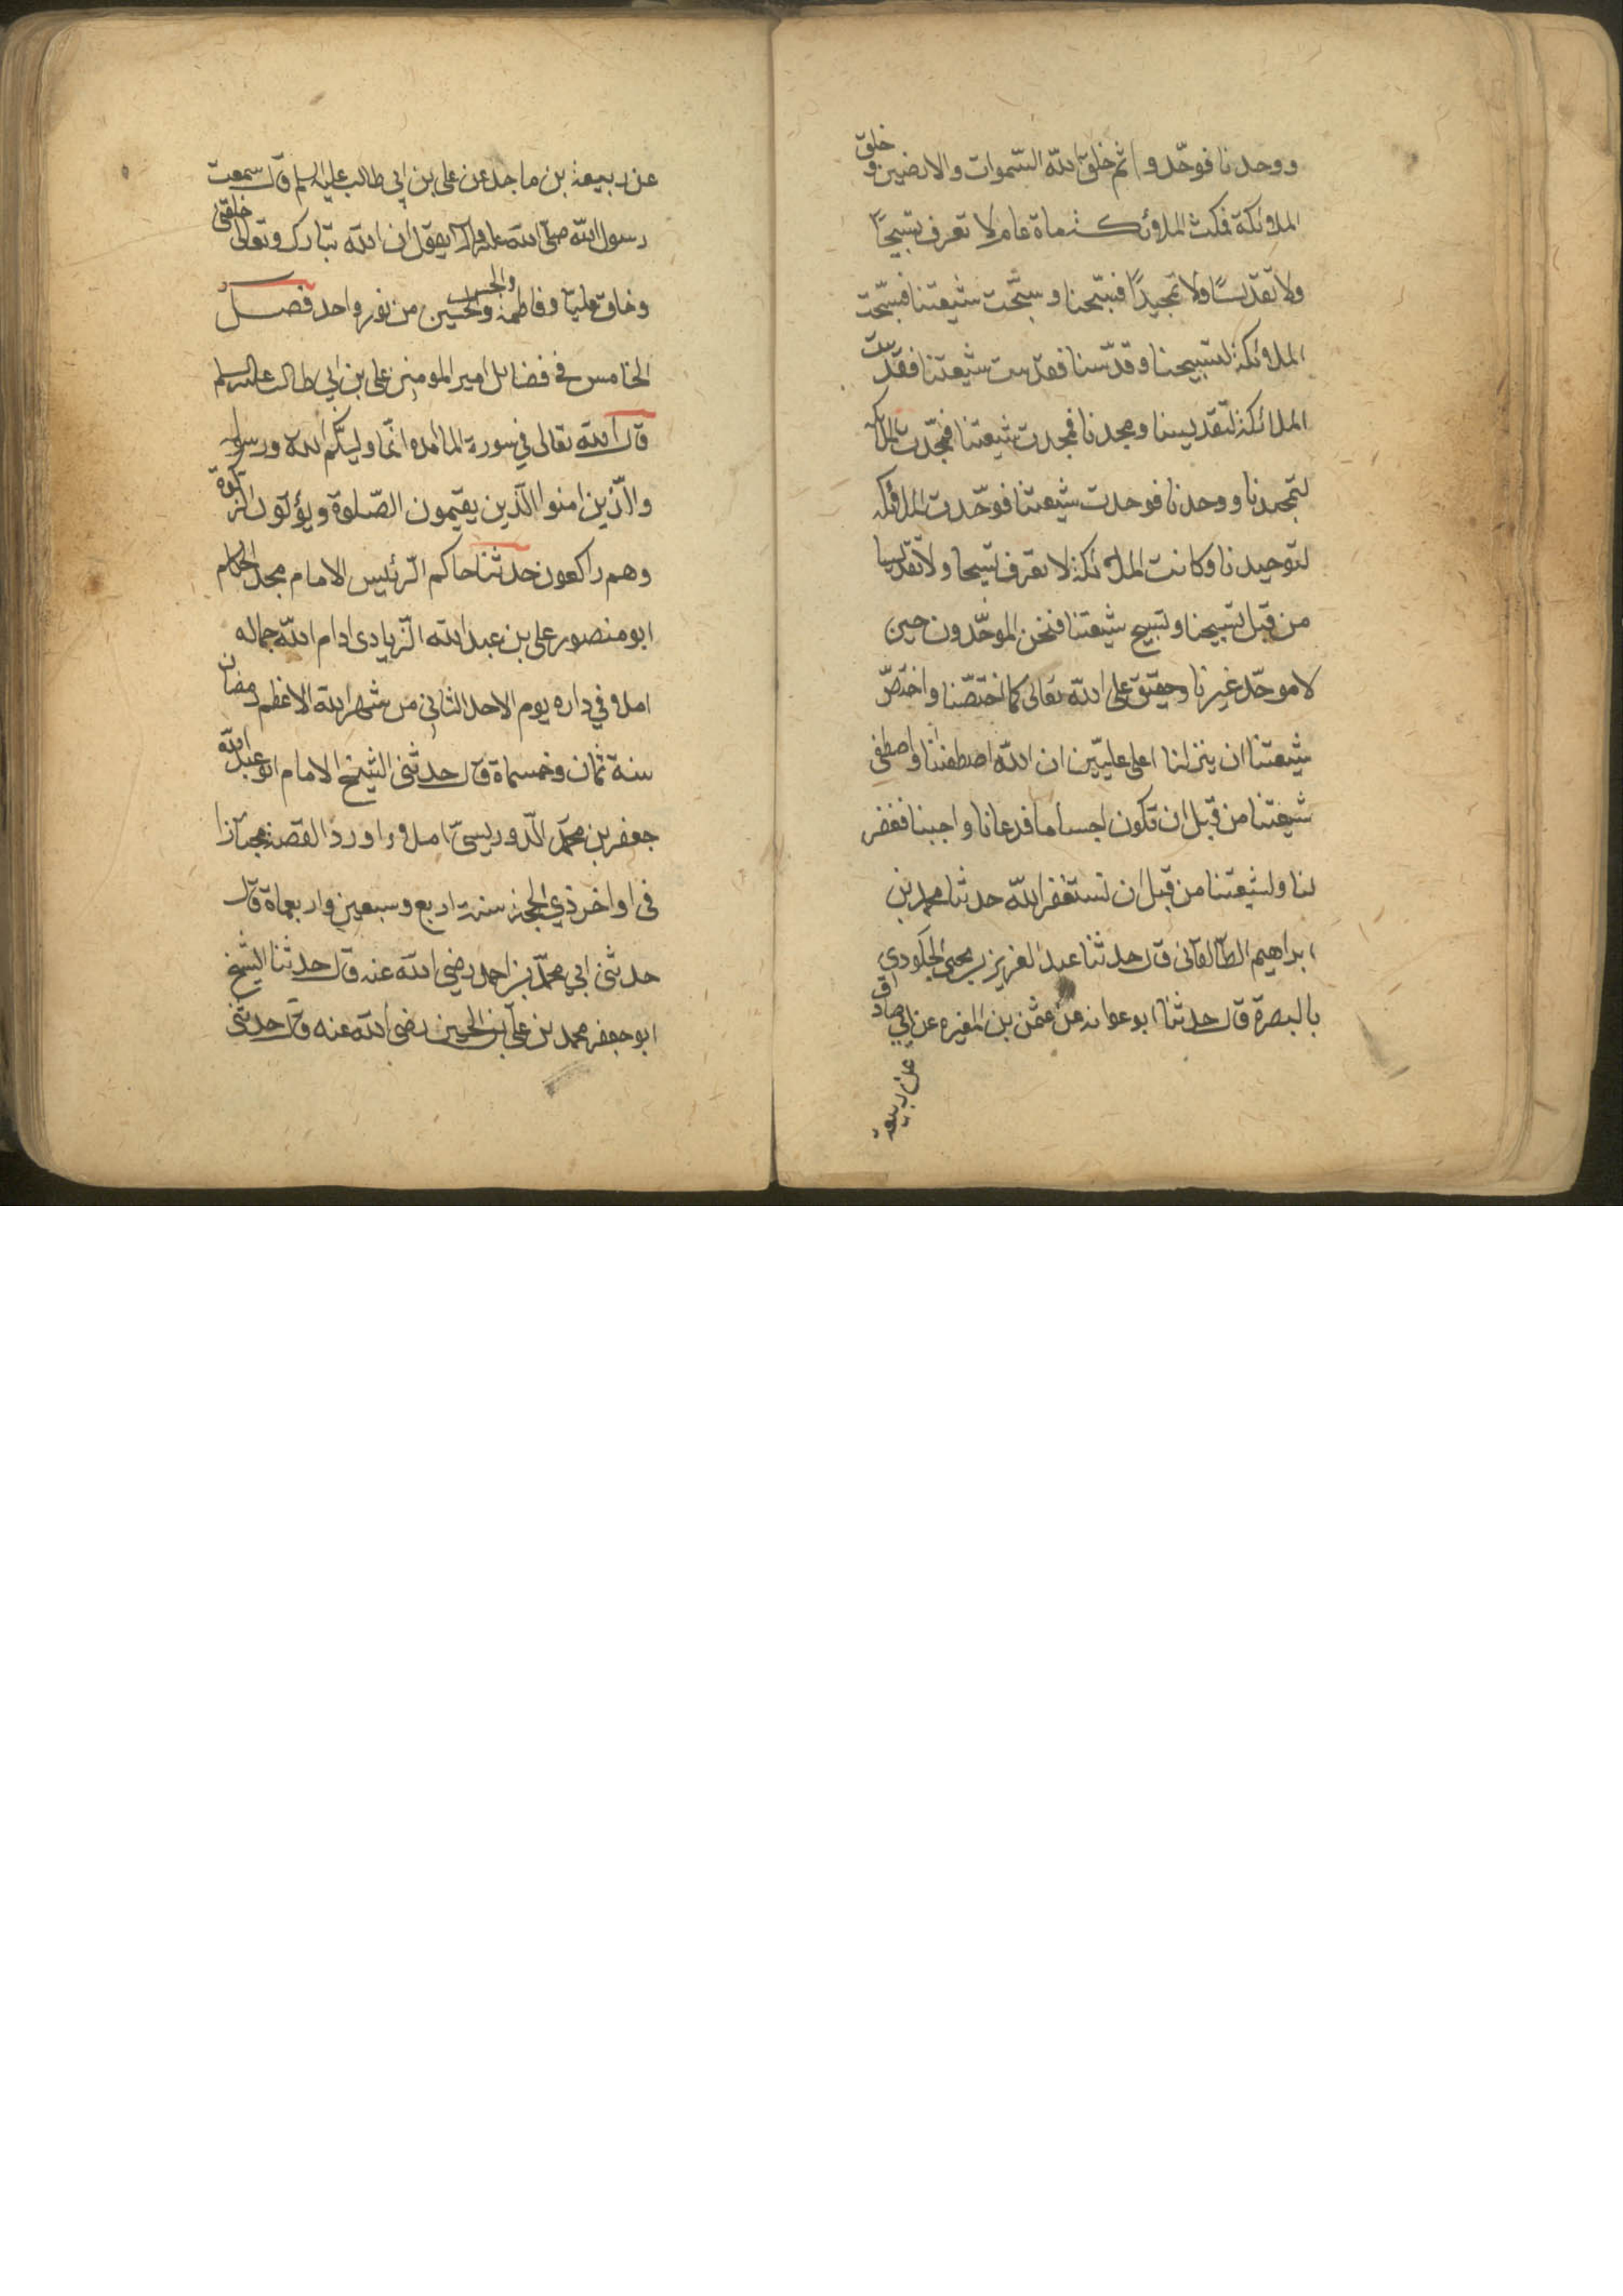 ووحدنا فوحّدوا ثم خلق الله السّموات والارضين و خلق
الملائكة فمكث الملائكة مائة عام لا تعرف تسبيحًا
ولا تقديسًا ولا تمجيدًا فسبّحنا وسبّحت شيعتنا فسبّحت
الملائكة لتسبيحنا وقدّسنا فقدّست شيعتنا فقدّست
الملائكة لتقديسنا ومجدنا فمجدت شيعتنا فمجّدت الملائكة
لتمجيدنا ووحدنا فوحدت شيعتنا فوحّدت الملائكة
لتوحيدنا وكانت الملائكة لا تعرف تسبيحا ولا تقديسا
من قبل تسبيحنا وتسبيح شيعتنا فنحن الموحّدون حين
لا موحّد غيرنا وحقيق على الله تعالى كما اختصّنا واختصّ
شيعتنا ان ينزلنا اعلى عليّين ان الله اصطفىنا واصطفى
شيعتنا من قبل ان تكون اجساما فدعانا واجبنا فغفر
لنا ولشيعتنا من قبل ان نستغفر الله حدثنا محمد بن
ابراهيم الطالقانى قال حدثنا عبد العزيز بن يحيى الجلودي
بالبصرة قال حدثنا ابو عوانه عن عثمن بن المغيره عن ابي صادق
عن ربيعة
عن ربيعة بن ماجد عن على بن ابي طالب عليه السلم قال سمعت
رسول الله صلى الله عليه وآله يقول ان الله تبارك وتعالى خلقنى
وخلق عليا وفاطمة والحسن والحسين من نور واحد فصل
الخامس في فضائل امير المومنين على بن ابي طالب عليه السلم
قال الله تعالى في سورة المائده انّما وليكم الله ورسوله
والّذين امنوا الّذين يقيمون الصّلوة ويؤتون الزكوة
وهم راكعون حدثنا حاكم الرّئيس الامام مجد الحكام
ابو منصور على بن عبد الله الزّيادى ادام الله جماله
املاء في داره يوم الاحد الثاني من شهر الله الاعظم رمضان
سنة ثمان وخمسماة قال حدثنى الشيخ الامام ابو عبد الله
جعفر بن محمد الدوريستى املاء اورد القصة مجتازا
فى اواخر ذي الحجة سنة اربع وسبعين واربعماة قال
حدثنى ابي محمّد بن احمد رضي الله عنه قال حدثنا الشيخ
ابو جعفر محمد بن على بن الحسين رضى الله عنه قال حدثنى